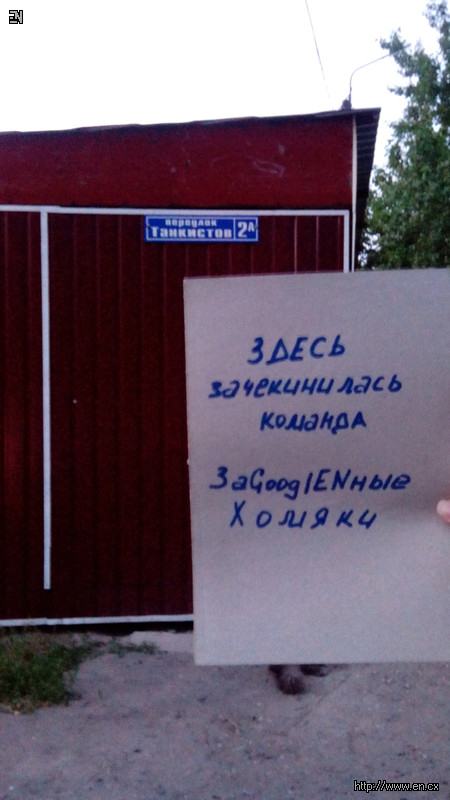 EN
переулок
Танкистов 2А
ЗДЕСЬ
зачекинилась
команда
ЗаGooglENные
Хомяки
http://www.en.cx